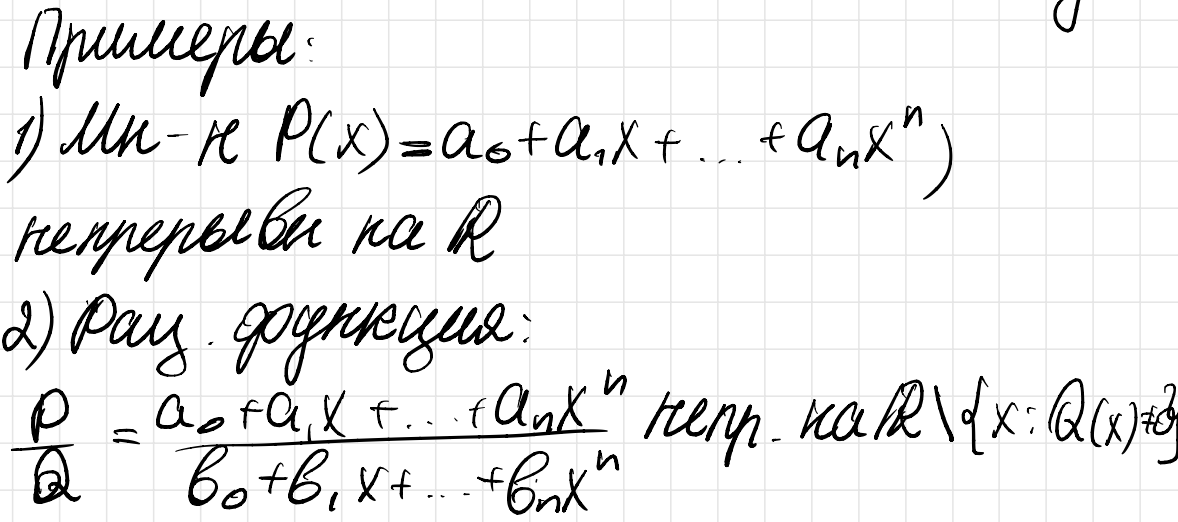 Примеры:
1) Мн-н P(x) = a₀ + a₁x + ... + aₙxⁿ)
непрерывн на ℝ
2) Рац. функция:
P/Q = (a₀ + a₁x + ... + aₙxⁿ)/(b₀ + b₁x + ... + bₙxⁿ) непр. на ℝ \ {x: Q(x) ≠ 0}